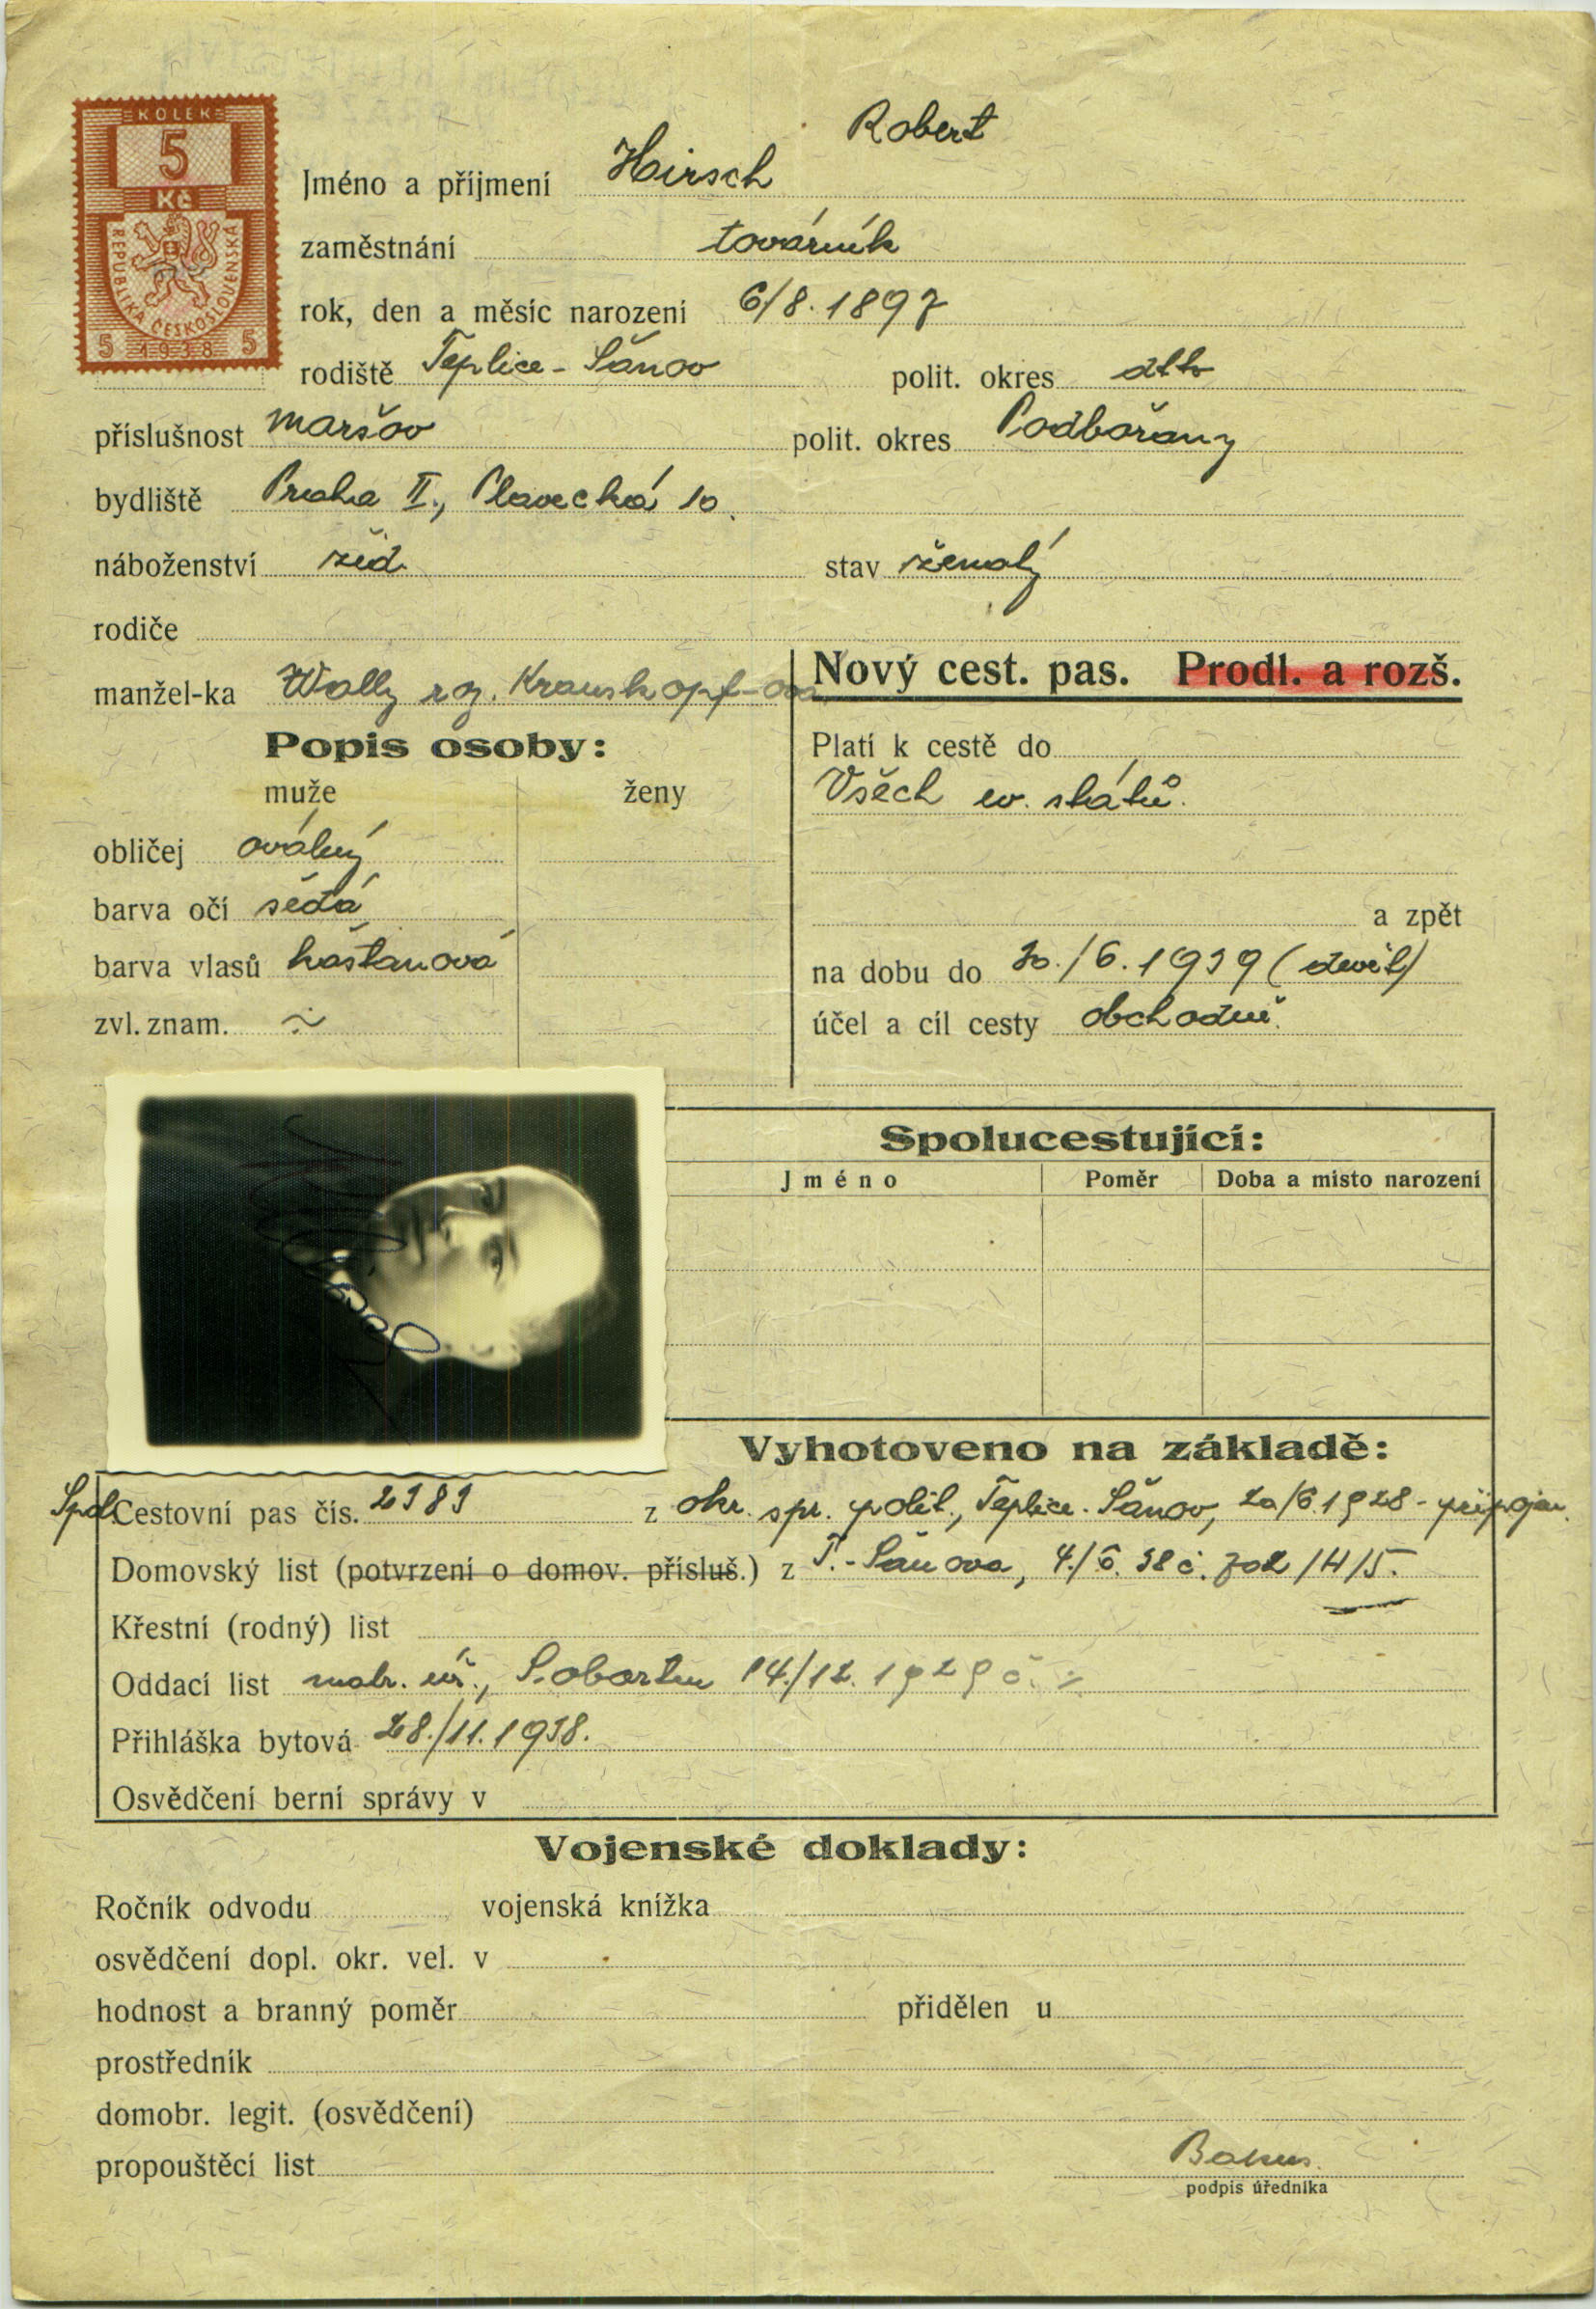 KOLEK
5
Kč
REPUBLIKA ČESKOSLOVENSKÁ
5 1938 5
Robert
Jméno a příjmení Hirsch
zaměstnání továrník
rok, den a měsíc narození 6/8. 1897
rodiště Teplice-Šanov polit. okres dtto
příslušnost Maršov polit. okres Podbořany
bydliště Praha II., Plavecká 10.
náboženství žid. stav ženatý
rodiče
manžel-ka Wally roz. Krauskopf-ová
Nový cest. pas. Prodl. a rozš.
Popis osoby:
muže ženy
obličej oválný
barva očí šedá
barva vlasů kaštanová
zvl. znam.
Platí k cestě do
Všech ev. států.
a zpět
na dobu do 30./6. 1939
účel a cíl cesty obchodní.
Spolucestující:
Jméno Poměr Doba a místo narození
Vyhotoveno na základě:
Cestovní pas čís. z okr. spr. polit., Teplice-Šanov, 20/6. 1928 - připojen.
Domovský list (potvrzení o domov. přísluš.) z T.-Šanova, 4./6. 38 č. 702/H/5.
Křestní (rodný) list
Oddací list matr. úř., 14./12. 1929 č.
Přihláška bytová 28./11. 1938.
Osvědčení berní správy v
Vojenské doklady:
Ročník odvodu vojenská knížka
osvědčení dopl. okr. vel. v
hodnost a branný poměr přidělen u
prostředník
domobr. legit. (osvědčení)
propouštěcí list
podpis úředníka